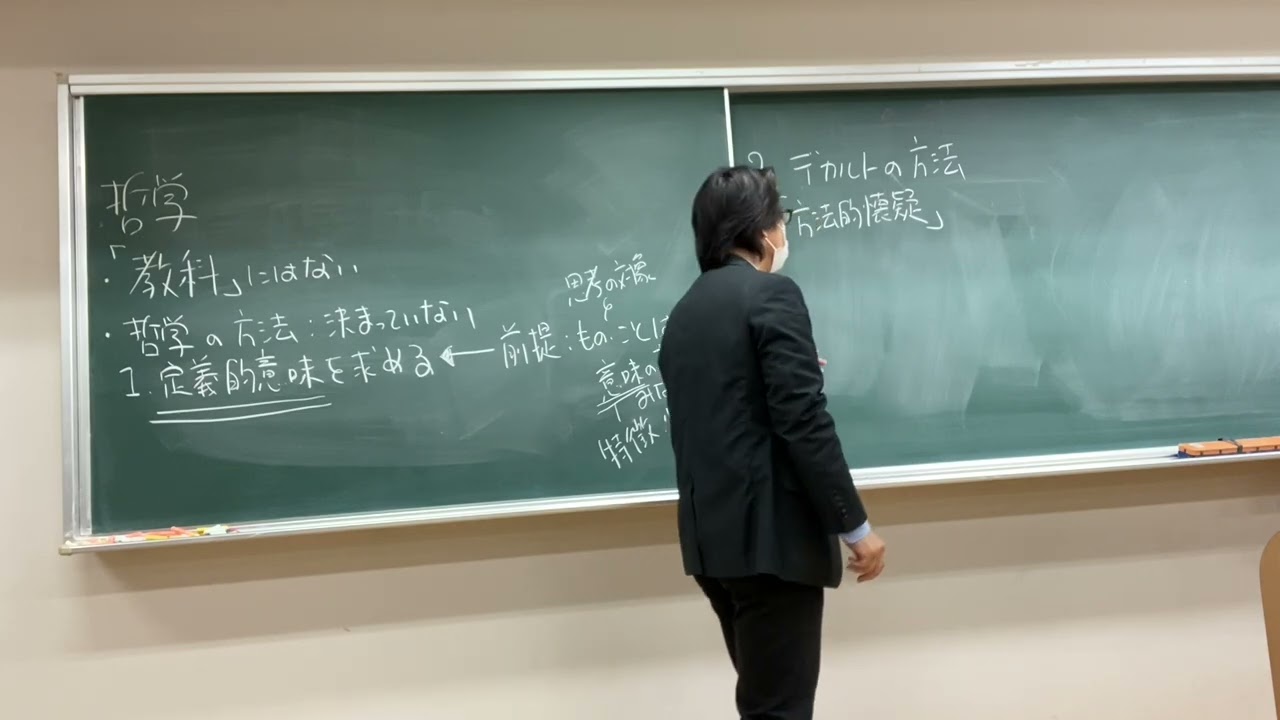 哲学
・「教科」にはない
・哲学の方法:決まっていない
1. 定義的意味を求める ← 前提:もの・こと
思考の対象
意味の
特徴
2. デカルトの方法
「方法的懐疑」